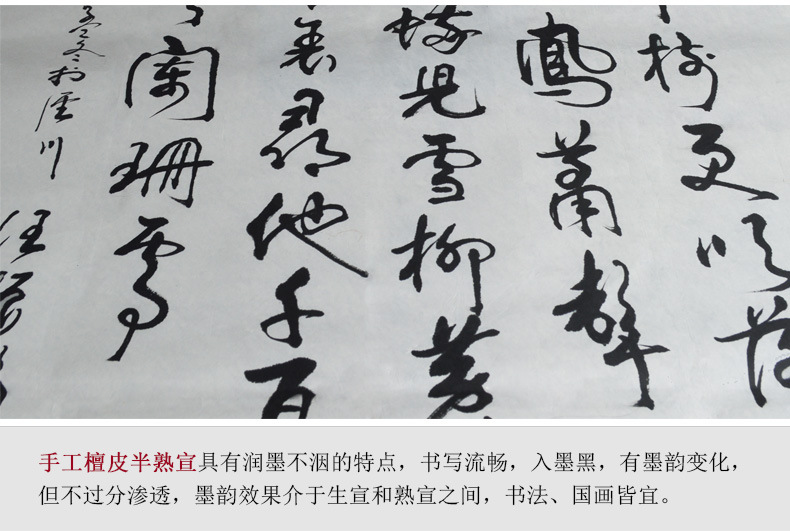 樹更吹落
鳳簫聲
蛾兒雪柳黄
裏尋他千百
闌珊處
涇川
汪
手工檀皮半熟宣具有润墨不洇的特点，书写流畅，入墨黑，有墨韵变化，
但不过分渗透，墨韵效果介于生宣和熟宣之间，书法、国画皆宜。